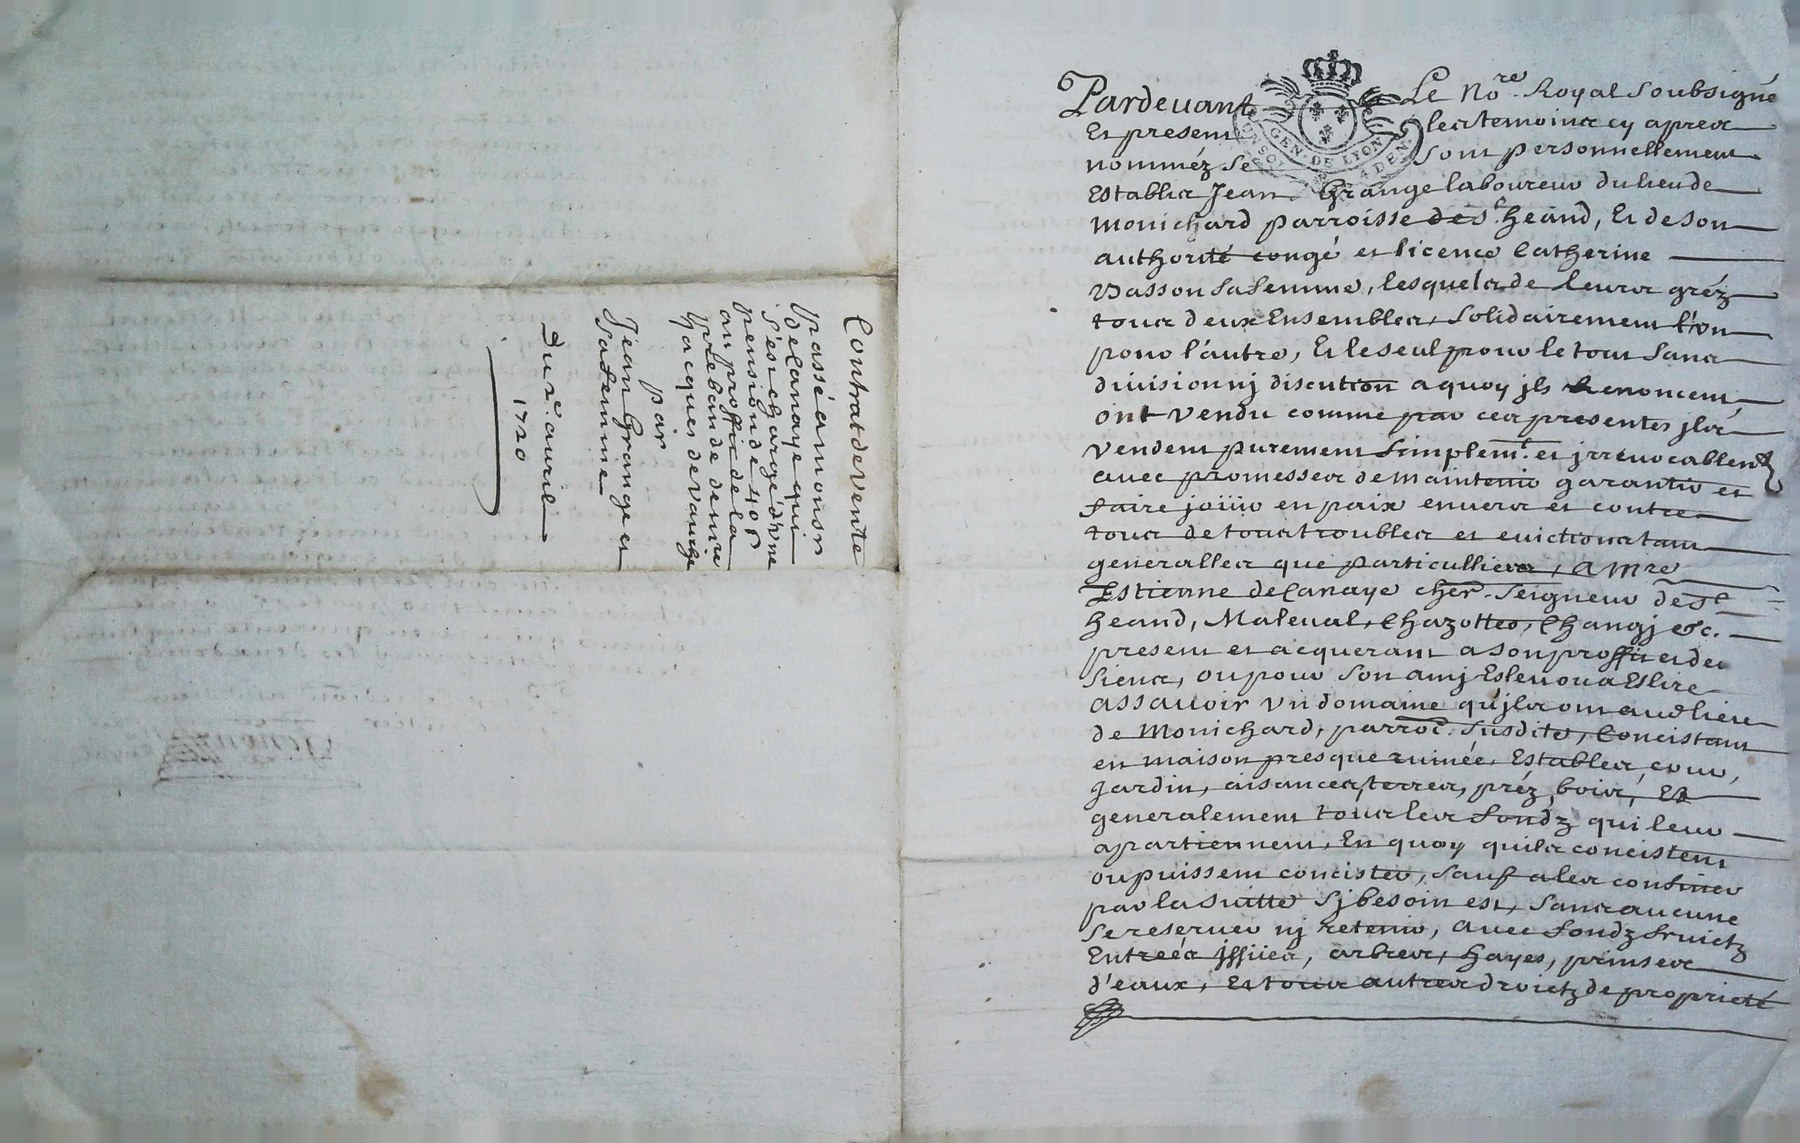 Contrat de vente
passé a monsr
delanaye qui
s'est chargé d'vne
pension de 40 s
au proffit de la
prebande de mre
Jacques de vauche
par
Jean Grange et
sa femme
Du 2e. auril
1720
Pardeuant Le Nore. Royal soubsigné
Et present les temoins cy apres
nomméz se sont personnellement
Establis Jean Grange laboureur du lieu de
monichard parroisse de St heand, Et de son
authorité congé et licence Catherine
Vasson sa femme, lesquels de leurs gréz
tous deux Ensembles, solidairement l'on
pour l'autre, Et le seul pour le tout sans
diuision nj discution a quoy jls Renoncent,
ont vendu comme par ces presentes jls
vendent purement simplemt. et jrreuocablemt
auec promesses de maintenir garantir et
faire joüir en paix enuers et contre
tous de tous troubles et euictions tant
generalles que particulliers, a Mre
Estienne delanaye cher. seigneur de St
heand, Maleual, Chazottes, Changj &c.
present et acquerant a son proffit et des
siens, ou pour son amj Esleu ou a Eslire
assauoir vn domaine qu'jls ont aud lieu
de Monichard, parroe. susdite, Concistant
en maison presque ruinée, Estables, cour,
jardin, aisances, terres, préz, bois, Et
generalement tous les fondz qui leur
apartiennent, En quoy quils concistent
ou puissent concister, sauf a les confiner
par la suitte sj besoin est, sans aucune
se reseruer nj retenir, auec fondz fruictz
Entrées jssües, arbres, hayes, prinses
d'eaux, Et tous autres droictz de proprieté
GEN. DE LYON